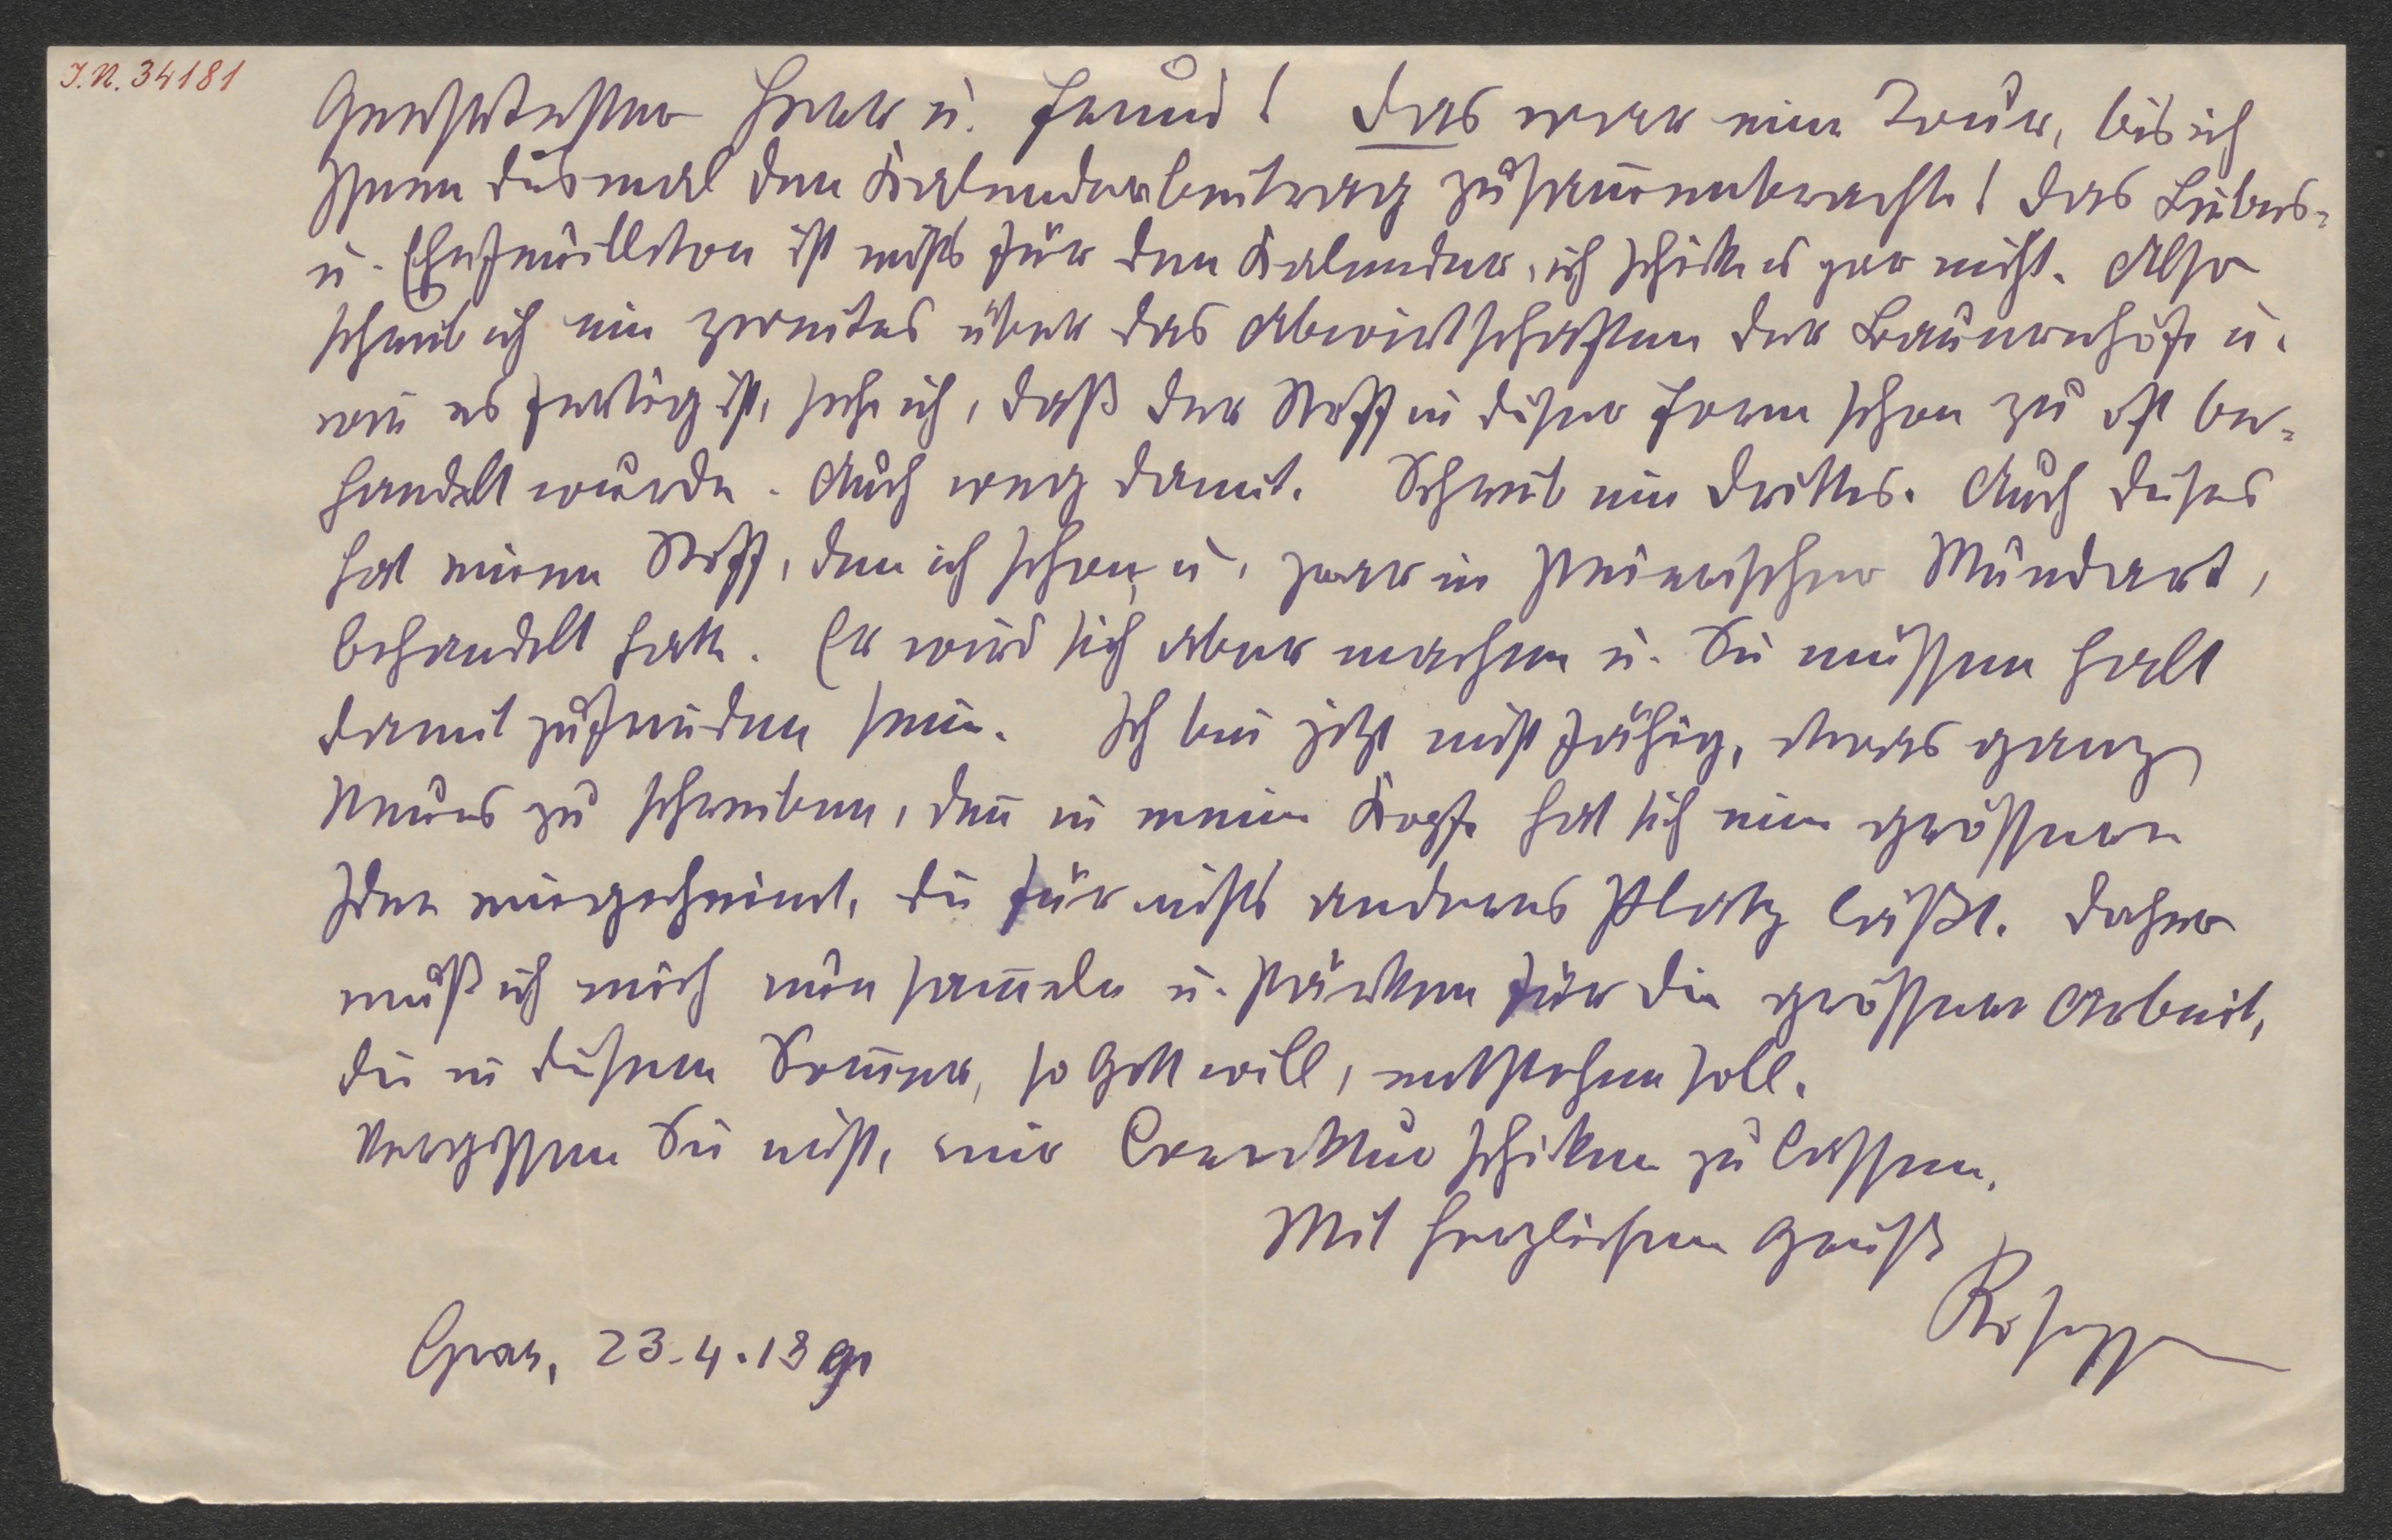 J.N. 34181
Geehrtester Herr u. Freund! Das war eine Tour, bis ich
Ihnen diesmal den Kalenderbeitrag zusam̄enbrachte! Das Liebes-
u. Ehefeuilleton ist nichts für den Kalender, ich schicke es gar nicht. Also
schreib ich ein zweites über das Abwirtschaften der Bauernhöfe u.
wie es fertig ist, sehe ich, daß der Stoff in dieser Form schon zu oft be-
handelt wurde. Auch weg damit. Schreib ein drittes. Auch dieses
hat einen Stoff, den ich schon, u. zwar in steirischer Mundart,
behandelt hatte. Er wird sich aber machen u. Sie müssen halt
damit zufrieden sein. Ich bin jetzt nicht fähig, etwas ganz
Neues zu schreiben, den̄ in meinem Kopfe hat sich eine grössere
Idee eingeheimt, die für nichts anderes Platz läßt. Daher
muß ich mich nun sam̄eln u. stärken für die grössere Arbeit,
die in diesem Som̄er, so Gott will, entstehen soll.
Vergessen Sie nicht, mir Correktur schicken zu lassen.
Mit herzlichem Gruß
Rosegger
Graz, 23.4.189